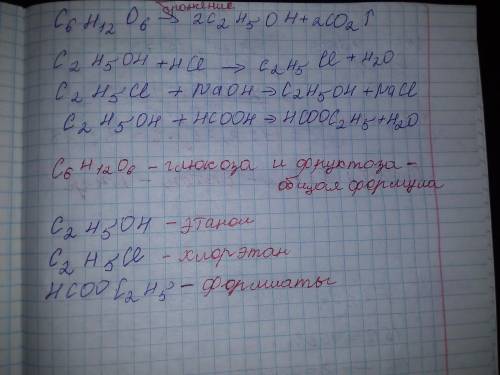 брожение
C6H12O6 → 2C2H5OH + 2CO2↑
C2H5OH + HCl → C2H5Cl + H2O
C2H5Cl + NaOH → C2H5OH + NaCl
C2H5OH + HCOOH → HCOOC2H5 + H2O
C6H12O6 - глюкоза и фруктоза -
общая формула
C2H5OH - этанол
C2H5Cl - хлорэтан
HCOOC2H5 - формиаты